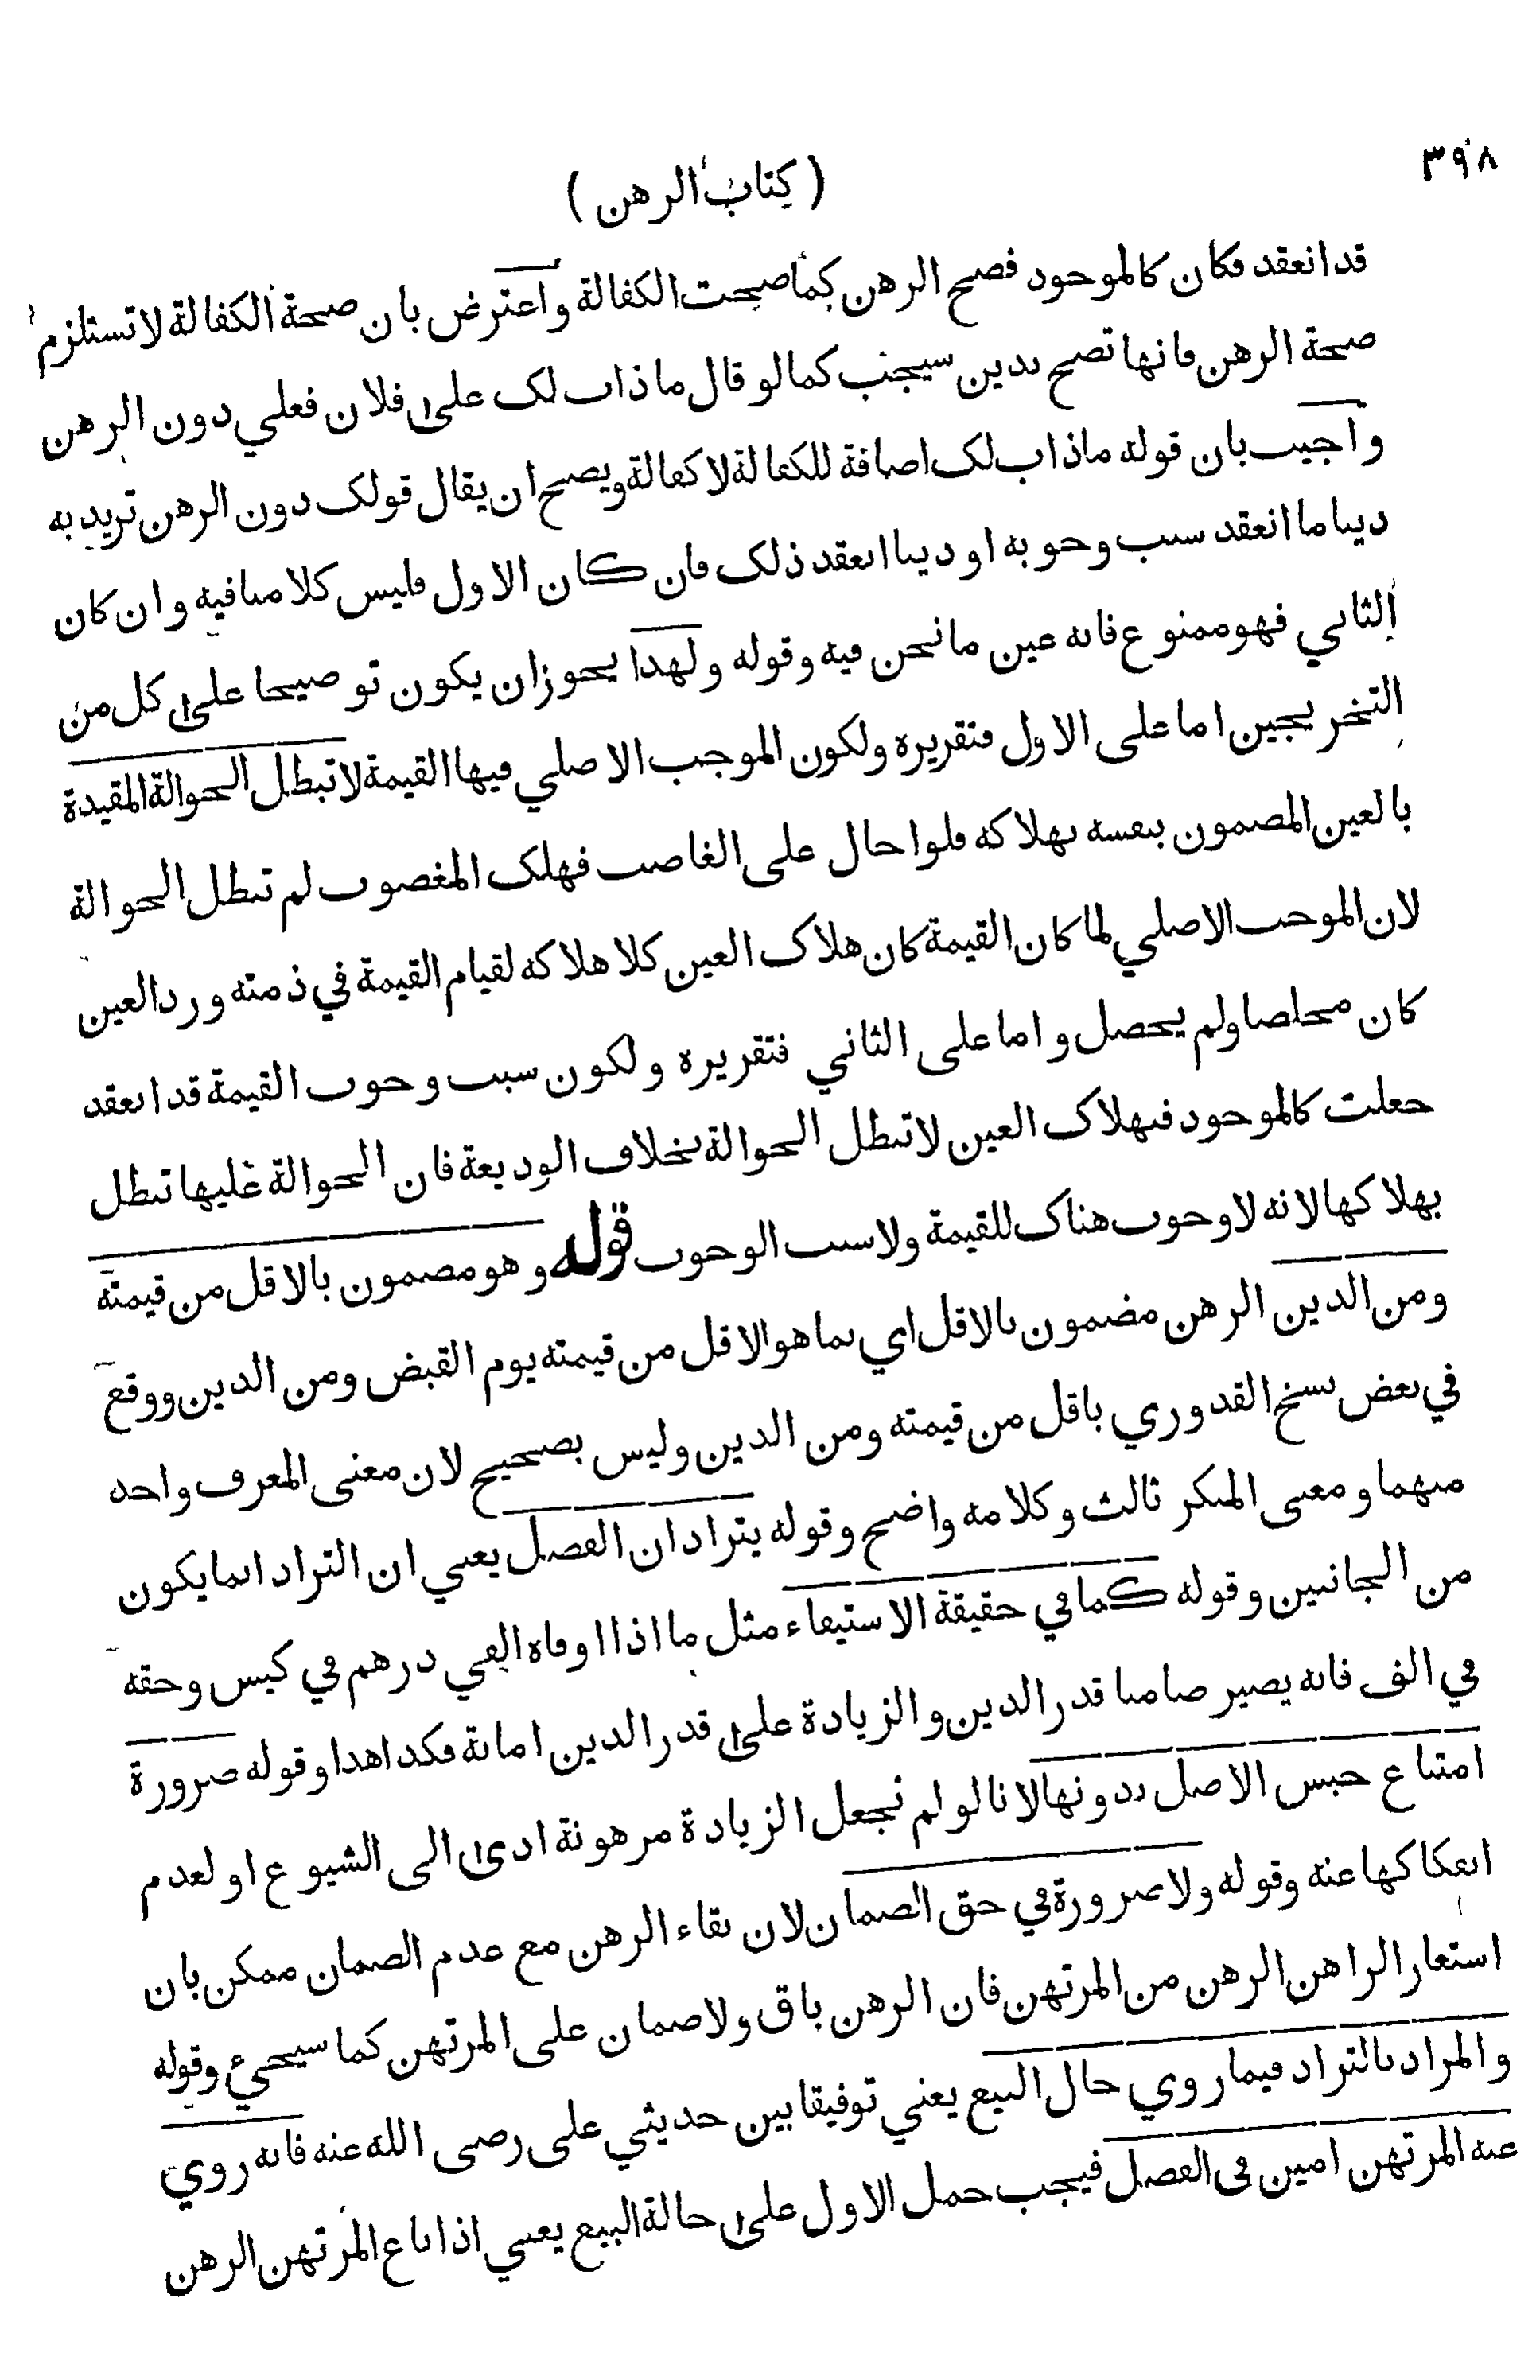 ٣٩٨
( كتاب الرهن )
قد انعقد فكان كالموجود فصح الرهن كما صحت الكفالة واعترض بان صحة الكفالة لا تستلزم
صحة الرهن فانها تصح بدين سيجب كما لو قال ما ذاب لك على فلان فعلي دون الرهن
واجيب بان قوله ماذاب لك اضافة للكفالة لا كفالة ويصح ان يقال قولك دون الرهن تريد به
دينا ما انعقد سبب وجوبه او دينا انعقد ذلك فان كان الاول فليس كلامنا فيه وان كان
الثاني فهو ممنوع فانه عين ما نحن فيه وقوله ولهذا يجوز ان يكون توضيحا على كل من
التخريجين اما على الاول فتقريره ولكون الموجب الاصلي فيها القيمة لا تبطل الحوالة المقيدة
بالعين المضمون بنفسه بهلاكه فلو احال على الغاصب فهلك المغصوب لم تبطل الحوالة
لان الموجب الاصلي لما كان القيمة كان هلاك العين كلا هلاكه لقيام القيمة في ذمته ورد العين
كان مخلصا ولم يحصل واما على الثاني فتقريره ولكون سبب وجوب القيمة قد انعقد
جعلت كالموجود فبهلاك العين لا تبطل الحوالة بخلاف الوديعة فان الحوالة عليها تبطل
بهلاكها لانه لا وجوب هناك للقيمة ولا سبب الوجوب قوله وهو مضمون بالاقل من قيمته
ومن الدين الرهن مضمون بالاقل اي بما هو الاقل من قيمته يوم القبض ومن الدين ووقع
في بعض نسخ القدوري باقل من قيمته ومن الدين وليس بصحيح لان معنى المعرف واحد
منهما ومعنى المنكر ثالث وكلامه واضح وقوله يترادان الفضل يعني ان التراد انما يكون
من الجانبين وقوله كما في حقيقة الاستيفاء مثل ما اذا اوفاه الفي درهم في كيس وحقه
في الف فانه يصير ضامنا قدر الدين والزيادة على قدر الدين امانة فكذا هذا وقوله ضرورة
امتناع حبس الاصل بدونها لانا لو لم نجعل الزيادة مرهونة ادى الى الشيوع او لعدم
انفكاكها عنه وقوله ولا ضرورة في حق الضمان لان بقاء الرهن مع عدم الضمان ممكن بان
استعار الراهن الرهن من المرتهن فان الرهن باق ولا ضمان على المرتهن كما سيجيء وقوله
والمراد بالتراد فيما روي حال البيع يعني توفيقا بين حديثي على رضى الله عنه فانه روي
عنه المرتهن امين في الفضل فيجب حمل الاول على حالة البيع يعني اذا باع المرتهن الرهن